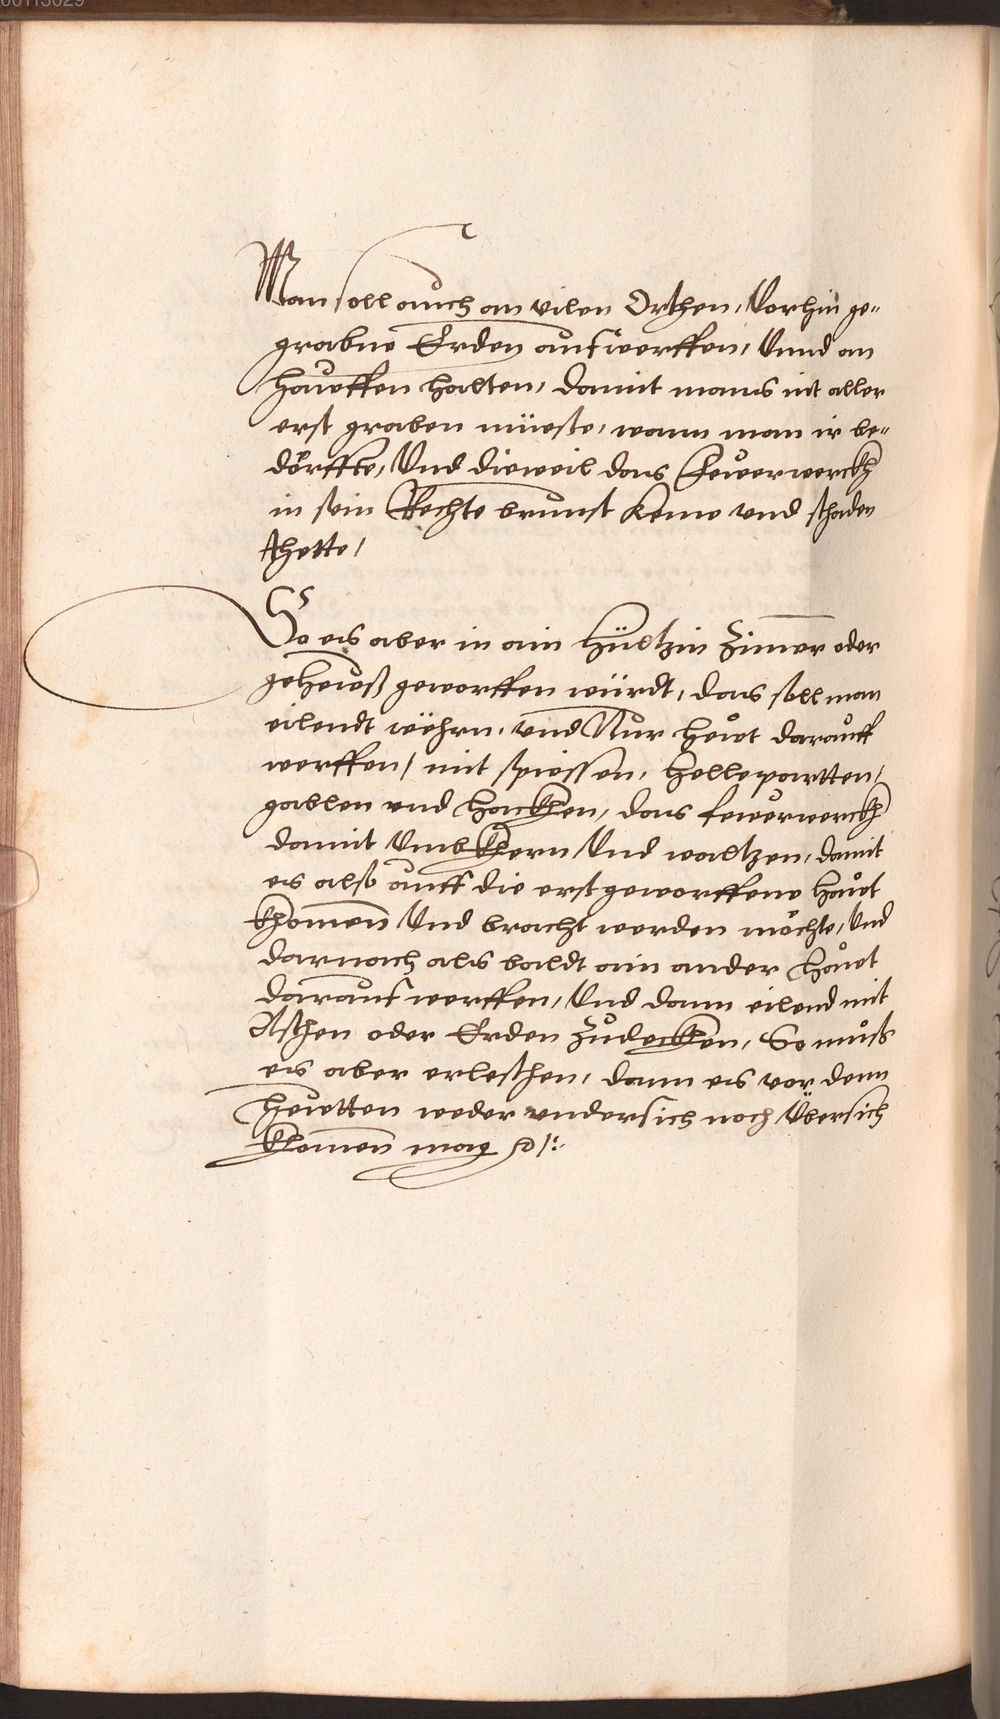 00113029
Man soll auch an vilen Orthen, Vorhin ge-
grabne Erden aufwerffen, Vnnd an
hauffen halten, damit mans nit aller
erst graben müeste, wann man ir be-
dörffte, Vnd dieweil das Fewerwerckh
in sein Rechte brunst keme vnd schaden
thette /
So es aber in ain hültzin Zimer oder
geheuß geworffen würdt, das soll man
eilendt wehrn, vnd Nur heut darauff
werffen / mit spiessen, hellepartten,
gablen vnd hackhen, das fewerwerckh
damit Vmbkhern Vnd waltzen, damit
es also auff die erst geworffene haut
khomen Vnd bracht werden möchte, Vnd
darnach als baldt ain ander haut
darauf werffen, Vnd dann eilend mit
Aschen oder Erden Zudeckhen, So muß
es aber erleschen, dann es vor denn
heutten weder vndersich noch Übersich
khomen mag